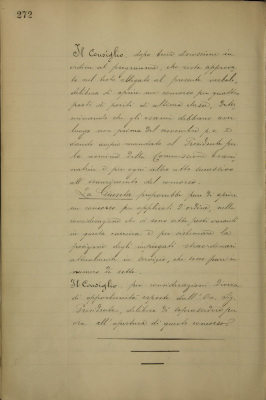 272
Il Consiglio, dopo breve discussione in
ordine al programma, che viene approva
to nel testo allegato al presente verbale,
delibera di aprire un concorso per quattro
posti di periti di ultima classe, deter
minando che gli esami debbano aver
luogo non prima del novembre p. v. e
dando ampio mandato al Presidente per
la nomina della Commissione esami
natrice e per ogni altro atto necessario
all'espletamento del concorso.
La Giunta proporrebbe pure di aprire
un concorso per applicati d'ordine, nella
considerazione che vi sono sette posti vacanti
in questa carriera e per sistemare la
posizione degli impiegati straordinari
attualmente in servizio, che sono pure in
numero di sette.
Il Consiglio, per considerazioni
di opportunità esposte dall' On. Sig.
Presidente, delibera di soprassedere per
ora all'apertura di questo concorso.